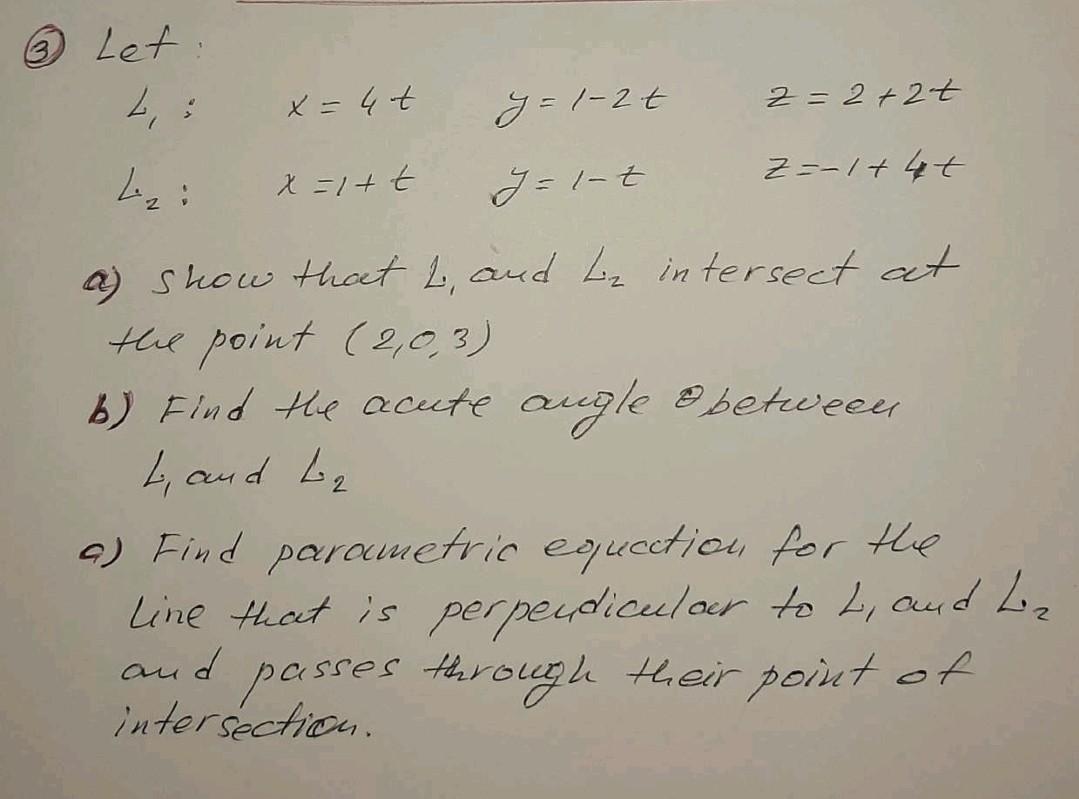 ③ Let:
L₁: x = 4t y = 1-2t z = 2+2t
L₂: x = 1+t y = 1-t z = -1+4t
a) show that L₁ and L₂ intersect at
the point (2,0,3)
b) Find the acute angle θ between
L₁ and L₂
c) Find parametric equation for the
line that is perpendicular to L₁ and L₂
and passes through their point of
intersection.